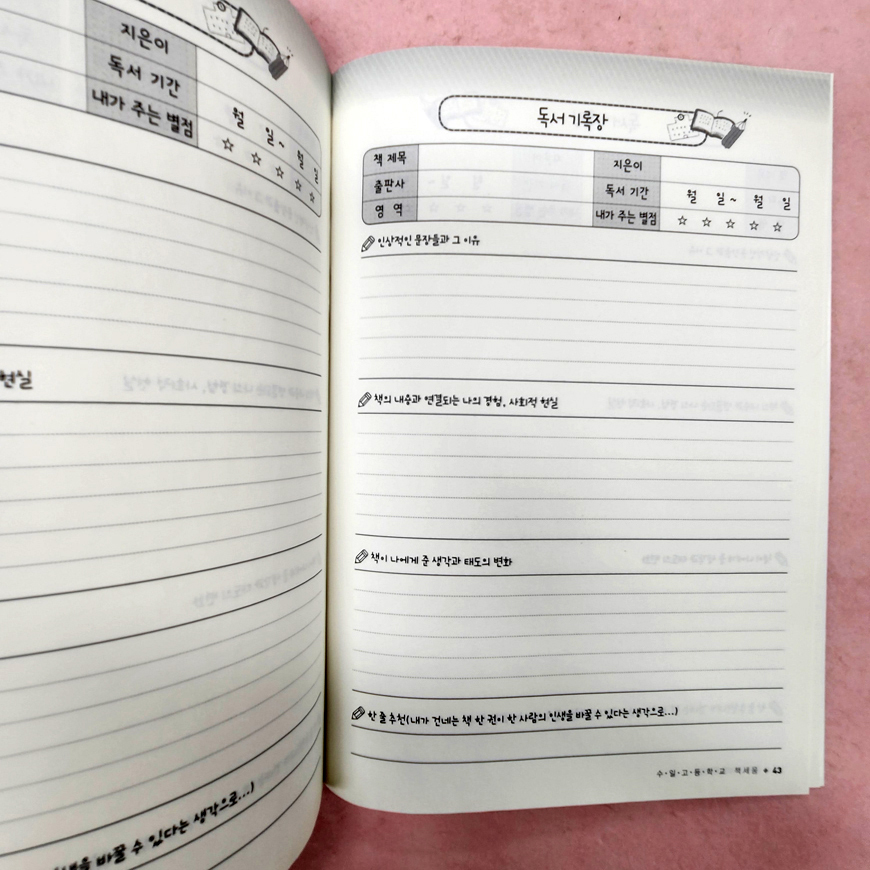 지은이
독서 기간 월 일~ 월 일
내가 주는 별점 ☆ ☆ ☆ ☆ ☆
현실
생각으로...)
바꿀 수 있다는
독서 기록장
책 제목 지은이
출판사 독서 기간 월 일~ 월 일
영 역 내가 주는 별점 ☆ ☆ ☆ ☆ ☆
인상적인 문장들과 그 이유
책의 내용과 연결되는 나의 경험, 사회적 현실
책이 나에게 준 생각과 태도의 변화
한 줄 추천(내가 건네는 책 한 권이 한 사람의 인생을 바꿀 수 있다는 생각으로...)
수·일·고·등·학·교 책세움 43